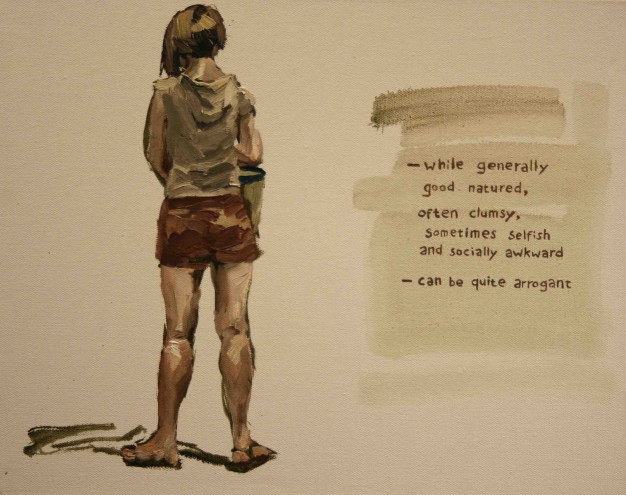 – while generally
good natured,
often clumsy,
sometimes selfish
and socially awkward
– can be quite arrogant